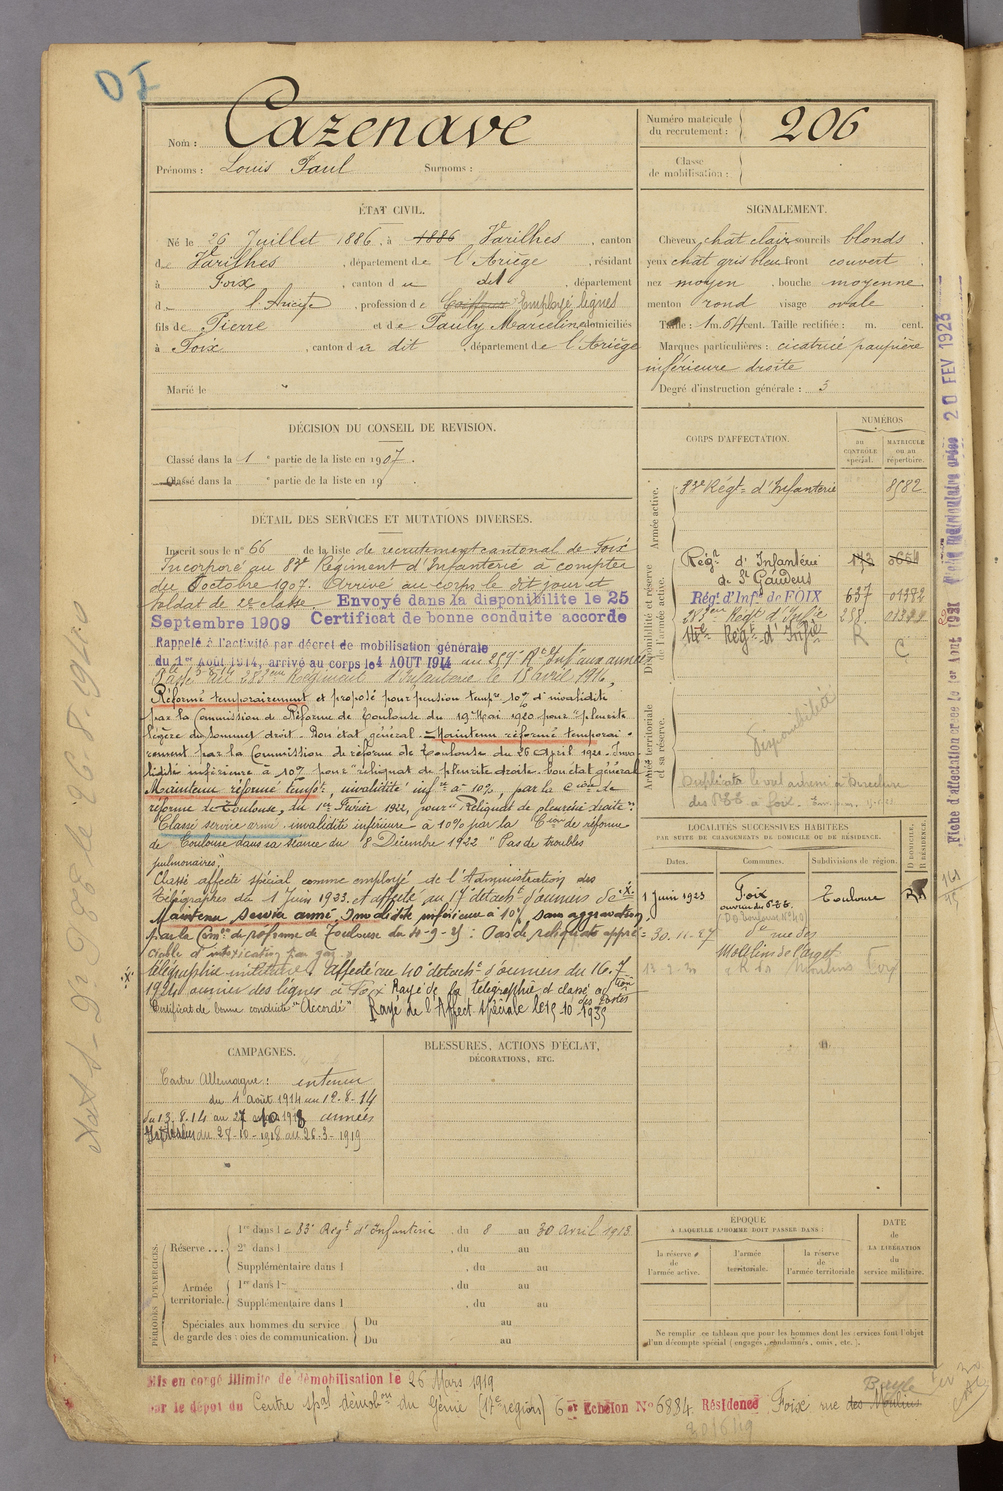 Nom : Cazenave
Prénoms : Louis Paul Surnoms :
Numéro matricule du recrutement : 206
Classe de mobilisation :
ÉTAT CIVIL.
Né le 26 Juillet 1886, à 1886 Varilhes, canton
de Varilhes, département de l'Ariège, résidant
à Foix, canton du dit, département
d l'Ariège, profession de Coiffeur Employé lignes
fils de Pierre et de Pauly Marceline domiciliés
à Foix, canton du dit, département de l'Ariège
Marié le
SIGNALEMENT.
Cheveux chât clair sourcils blonds
yeux chât gris bleu front couvert
nez moyen, bouche moyenne
menton rond visage ovale
Taille : 1 m. 64 cent. Taille rectifiée : m. cent.
Marques particulières : cicatrice paupière
inférieure droite
Degré d'instruction générale : 3
DÉCISION DU CONSEIL DE REVISION.
Classé dans la 1e partie de la liste en 1907.
Classé dans la e partie de la liste en 19
DÉTAIL DES SERVICES ET MUTATIONS DIVERSES.
Inscrit sous le n° 66 de la liste de recrutement cantonal de Foix
Incorporé au 83e Régiment d'Infanterie à compter
du 8 octobre 1907. Arrivé au corps le dit jour et
soldat de 2e classe. Envoyé dans la disponibilité le 25
Septembre 1909 Certificat de bonne conduite accordé
Rappelé à l'activité par décret de mobilisation générale
du 1er Août 1914, arrivé au corps le 4 AOUT 1914 au 259e Rt d'Inf aux armées
Régiment d'Infanterie le 15 avril 1916,
Réformé temporairement et proposé pour pension tempre 10% d'invalidité
par la Commission de Réforme de Toulouse du 19 Mai 1920 pour "pleurite
légère du sommet droit. Bon état général. Maintenu réformé temporai-
rement par la Commission de réforme de Toulouse du 26 April 1921. Inva-
lidité inférieure à 10% pour "reliquat de pleurite droite. bon état général
Maintenu réformé tempre, invalidité infre à 10%, par la Cion de
réforme de Toulouse, du 1er Février 1922, pour "Reliquat de pleurite droite".
Classé service armé, invalidité inférieure à 10% par la Cion de réforme
de Toulouse dans sa séance du 8 Décembre 1922 "Pas de troubles
pulmonaires".
Classé affecté spécial comme employé de l'Administration des
Télégraphes du 1 Juin 1923. Affecté au 17e détacht d'ouvriers de
Maintenu service armé. Invalidité inférieure à 10% sans aggravation
par la Comon de réforme de Toulouse du : Pas de reliquats appré-
ciable d'intoxication par gaz
télégraphie militaire. affecté au 40e détacht d'ouvriers du 16.7
1924 ouvrier des lignes à Foix Rayé de la télégraphie
Certificat de bonne conduite "Accordé" Rayé de l'Affect. spéciale le 15 10 1935
CORPS D'AFFECTATION.
NUMÉROS
au CONTRÔLE spécial.
MATRICULE ou au répertoire.
Armée active.
83e Régt d'Infanterie 8582
Disponibilité et réserve de l'armée active.
Régt d'Infanterie de St Gaudens 173
Régt d'Infie de FOIX 637 01382
Régt d'Infie 258
14e Régt d'Infie R C
Armée territoriale et sa réserve.
Disponibilité
LOCALITÉS SUCCESSIVES HABITÉES
PAR SUITE DE CHANGEMENTS DE DOMICILE OU DE RÉSIDENCE.
Dates. Communes. Subdivisions de région. D DOMICILE, R RÉSIDENCE.
1 Juin 1923 Foix Toulouse
30.11.27 rue des
Moulins
CAMPAGNES.
Contre Allemagne : intérieur
du 4 août 1914 au 12-8-14
du 13.8.14 au 27 1918 armées
du 28-10-1918 au 26-3-1919
BLESSURES, ACTIONS D'ÉCLAT,
DÉCORATIONS, ETC.
PÉRIODES D'EXERCICES.
Réserve....
1re dans le 83e Régt d'Infanterie, du 8 au 30 avril 1913
2e dans l , du au
Supplémentaire dans l , du au
Armée territoriale.
1re dans l , du au
Supplémentaire dans l , du au
Spéciales aux hommes du service de garde des voies de communication.
Du au
Du au
ÉPOQUE
A LAQUELLE L'HOMME DOIT PASSER DANS :
la réserve de l'armée active.
l'armée territoriale.
la réserve de l'armée territoriale
DATE DE LA LIBÉRATION du service militaire.
Ne remplir ce tableau que pour les hommes dont les services font l'objet
d'un décompte spécial (engagés, condamnés, omis, etc.).
Mis en congé illimité de démobilisation le 26 Mars 1919
par le dépôt du Centre spal démobon du Génie (17e région) 6e Echelon N° 6884. Résidence Foix rue des Moulins
Fiche d'affectation créée le 1er Août 1931
20 FEV 1923